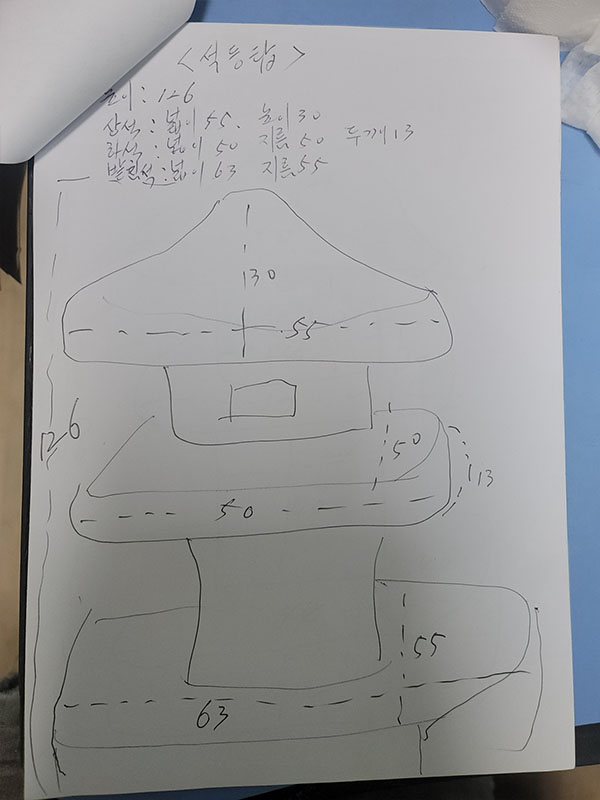 <석등탑>
높이 : 126
상석 : 넓이 55. 높이 30
하석 : 넓이 50 지름 50 두께 13
받침석 : 넓이 63 지름 55
30
55
126
50
13
50
55
63